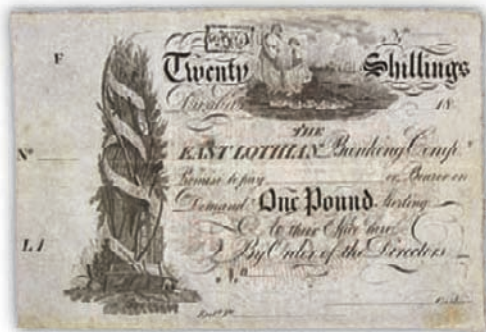 Nº
F
Twenty Shillings
Dunbar 18
THE
Nº EAST LOTHIAN Banking Compy
Promise to pay or Bearer on
Demand One Pound Sterling
L1 to their Office here
By Order of the Directors